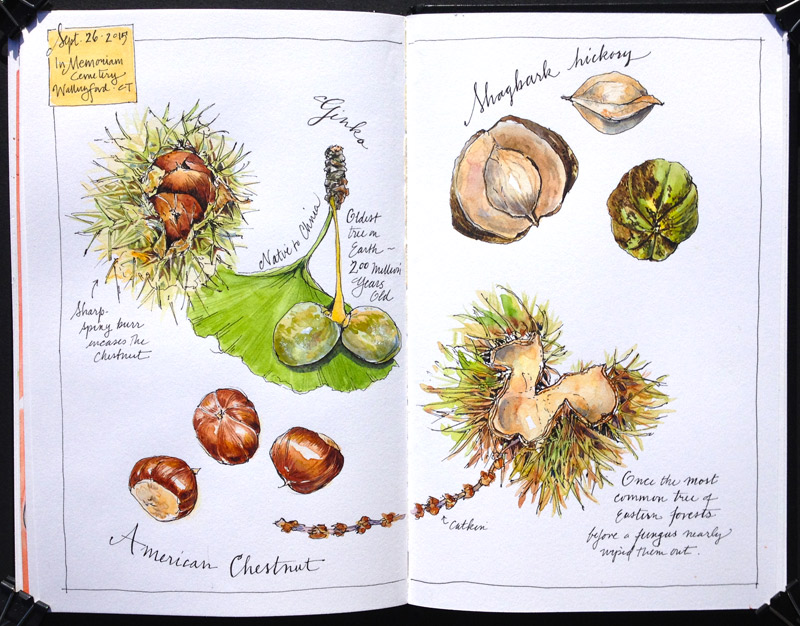 Sept. 26. 2015
In Memoriam
Cemetery
Wallingford. CT
Ginko
Native to China
Oldest
tree on
Earth ~
200 Million
Years
Old
Sharp-
spiny burr
encases the
Chestnut
American Chestnut
Shagbark hickory
Catkin
Once the most
common tree of
Eastern forests
before a fungus nearly
wiped them out.